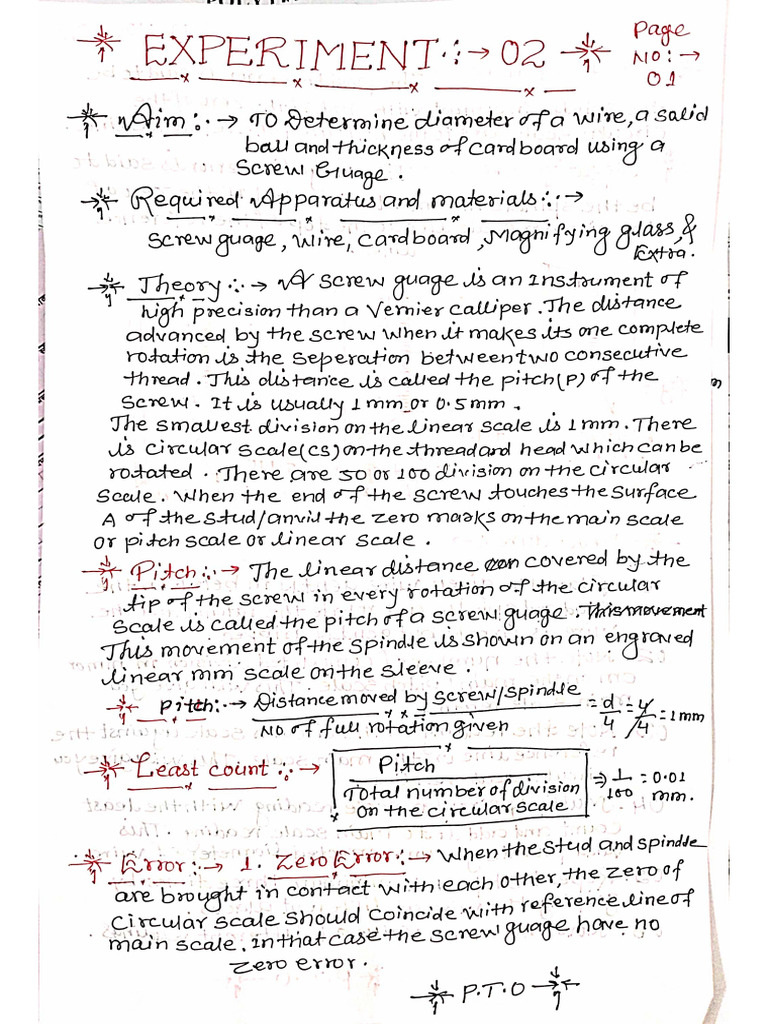 EXPERIMENT :→ 02
Page
No:→
01
Aim:→ To Determine diameter of a wire, a solid
ball and thickness of cardboard using a
screw Guage.
Required Apparatus and materials:→
Screw guage, wire, cardboard, Magnifying glass, &
Extra.
Theory:→ A screw guage is an Instrument of
high precision than a Vernier calliper. The distance
advanced by the screw when it makes its one complete
rotation is the seperation between two consecutive
thread. This distance is called the pitch (P) of the
screw. It is usually 1mm or 0.5mm.
The smallest division on the linear scale is 1mm. There
is circular scale (CS) on the thread and head which can be
rotated. There are 50 or 100 division on the circular
scale. When the end of the screw touches the surface
A of the stud/anvil the zero marks on the main scale
or pitch scale or linear scale.
Pitch:→ The linear distance covered by the
tip of the screw in every rotation of the circular
scale is called the pitch of a screw guage. This movement
This movement of the spindle is shown on an engraved
linear mm scale on the sleeve.
Pitch:→ Distance moved by screw/spindle = d/4 = 4/4 = 1mm
No. of full rotation given
Least count:→ Pitch
Total number of division ⇒ 1/100 = 0.01 mm.
on the circular scale
Error:→ 1. Zero Error:→ When the stud and spindle
are brought in contact with each other, the zero of
circular scale should coincide with reference line of
main scale. In that case the screw guage have no
zero error.
P.T.O